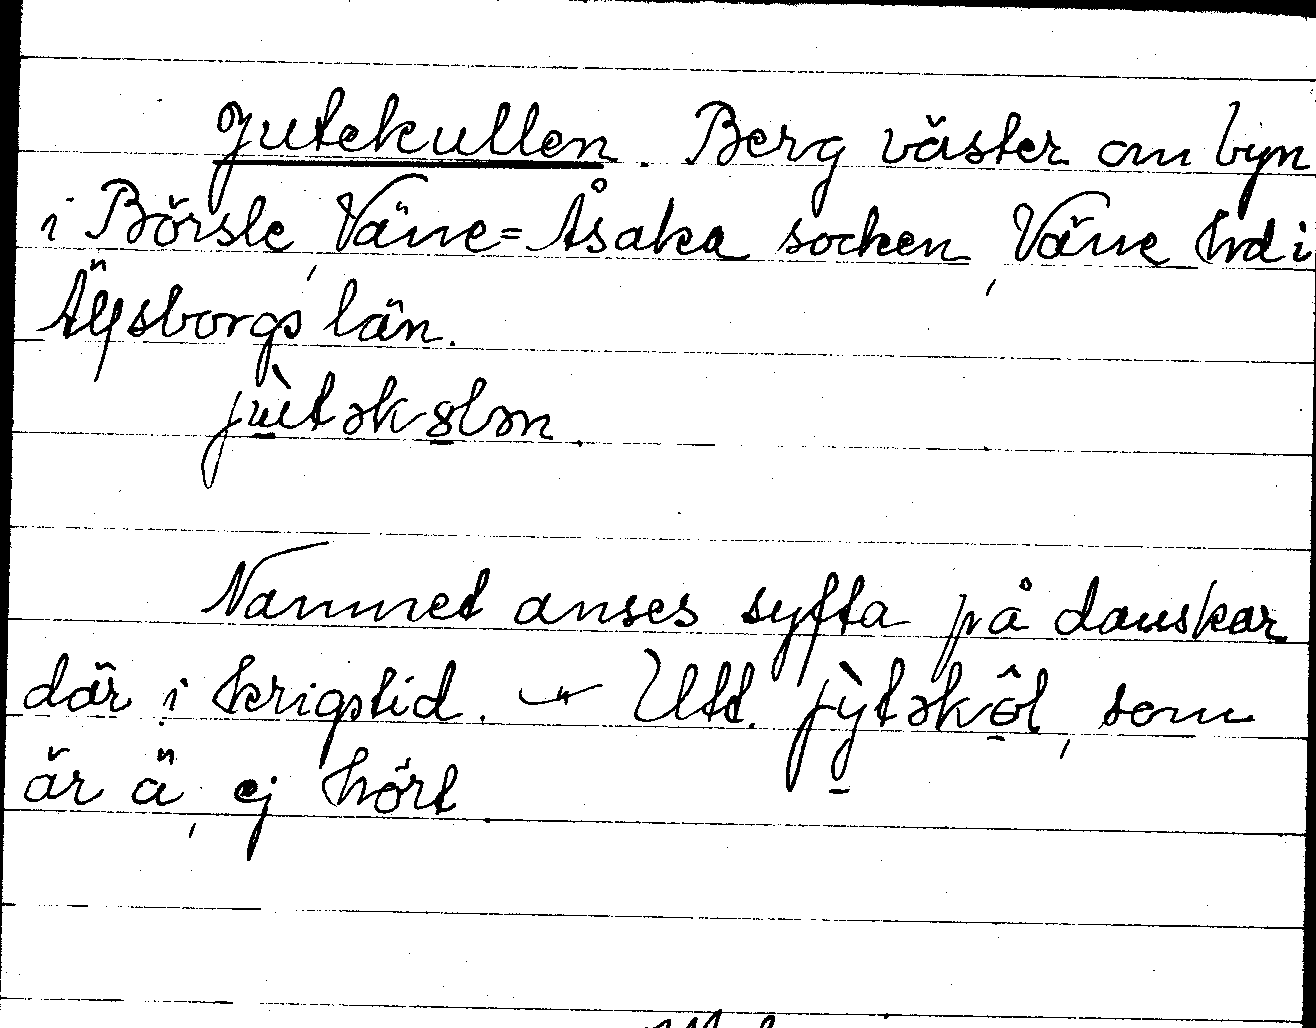 Jutekullen. Berg väster om byn
i Börsle, Väne=Åsaka socken, Väne hd i
Älfsborgs län.
jùtəkɞlən.
Namnet anses syfta på danskar
där i krigstid. — Utt. jỳtəkôl, som
är ä, ej hört.